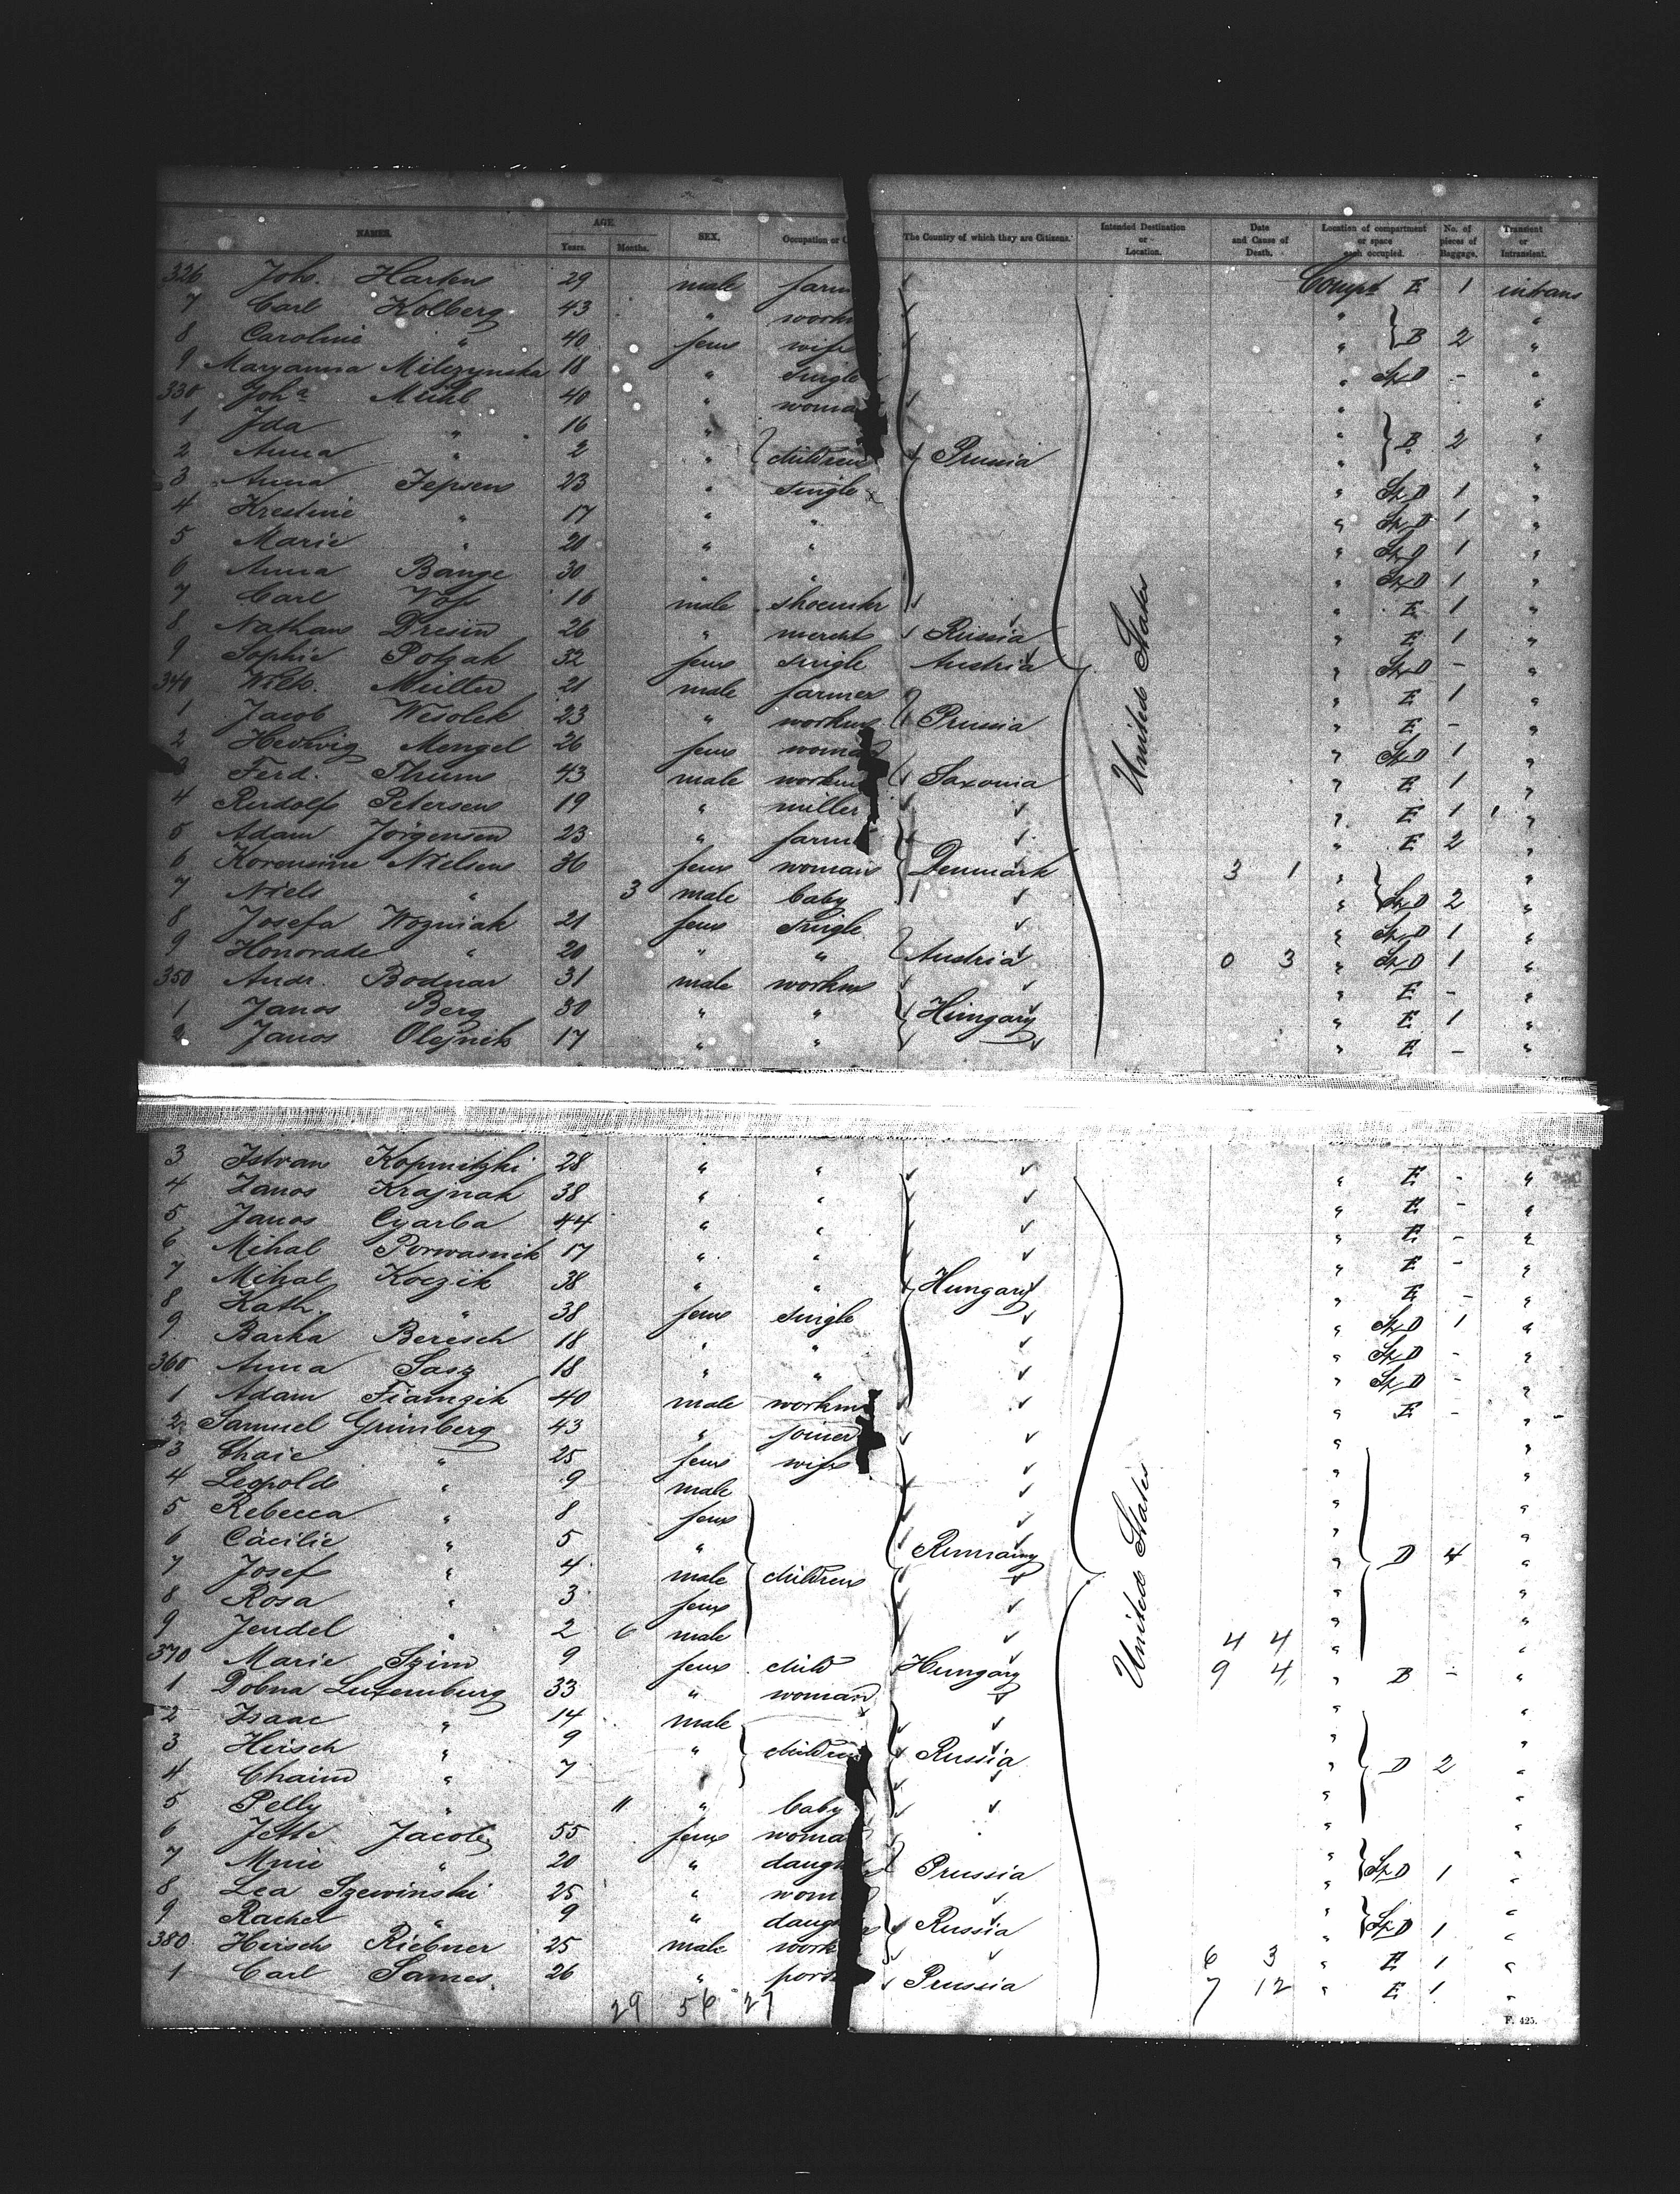 NAMES. AGE. Years. Months. SEX. Occupation or The Country of which they are Citizens. Intended Destination or Location. Date and Cause of Death. Location of compartment or space each occupied. No. of pieces of Baggage. Transient or Intransient.
326 Joh. Harken 29 male farm Compt E 1 intrans
7 Carl Kolberg 43 " workm " "
8 Caroline " 40 fem wife " B 2 "
9 Maryanna Milczynska 18 " single " St D - "
330 Joha Muhl 40 " woman " "
1 Ida " 16 " " B 2 "
2 Anna " 2 " children Prussia " "
3 Anna Jepsen 23 " single " St D 1 "
4 Krestine " 17 " " " St D 1 "
5 Marie " 20 " " " St D 1 "
6 Anna Bange 30 " " " St D 1 "
7 Carl Voss 16 male shoemkr " E 1 "
8 Nathan Dresin 26 " mercht Russia " E 1 "
9 Sophie Potzak 32 fem single Austria " St D - "
340 Wilh. Müller 21 male farmer " E 1 "
1 Jacob Wesolek 23 " workm Prussia United States " E - "
2 Hedwig Mengel 26 fem woman " St D 1 "
Ferd. Thum 43 male workm Saxonia " E 1 "
4 Rudolf Petersen 19 " miller " E 1 "
5 Adam Jörgensen 23 " farm " E 2 "
6 Korensine Nielsen 36 fem woman Denmark 3 1 " "
7 Niels " 3 male baby " St D 2 "
8 Josefa Wozniak 21 fem single " St D 1 "
9 Honorade " 20 " " Austria 0 3 " St D 1 "
350 Andr. Bodnar 31 male workm " E - "
1 Janos Berg 30 " " Hungary " E 1 "
2 Janos Olejnik 17 " " " E - "
3 Istvan Kopnitzki 28 " " " E - "
4 Janos Krajnak 38 " " " E - "
5 Janos Cyarba 44 " " " E - "
6 Mihal Porwasnik 17 " " " E - "
7 Mihal Koczik 38 " " Hungary " E - "
8 Kath. " 38 fem single " St D 1 "
9 Barka Beresch 18 " " " St D - "
360 Anna Sasz 18 " " " St D - "
1 Adam Fiamzik 40 male workm " E - "
2 Samuel Grünberg 43 " joiner " "
3 Chaie " 25 fem wife " "
4 Leopold " 9 male " "
5 Rebecca " 8 fem " "
6 Cäcilie " 5 " Rumainy " D 4 "
7 Josef " 4 male children " "
8 Rosa " 3 fem United States " "
9 Jendel " 2 6 male 4 4 " "
370 Marie Szim 9 fem child Hungary 9 4 " B - "
1 Dobna Luxemburg 33 " woman " "
2 Isaac " 14 male " "
3 Hirsch " 9 " children Russia " D 2 "
4 Chaim " 7 " " "
5 Pelly " 11 " baby " "
6 Jette Jacoby 55 fem woma " "
7 Mine " 20 " daugh Prussia " St D 1 "
8 Lea Szewinski 25 " wom " "
9 Rachel " 9 " daugh Russia " St D 1 "
380 Hirsch Riebner 25 male work 6 3 " E 1 "
1 Carl Sames 26 " port Prussia 7 12 " E 1 "
29 56 27
F. 425.